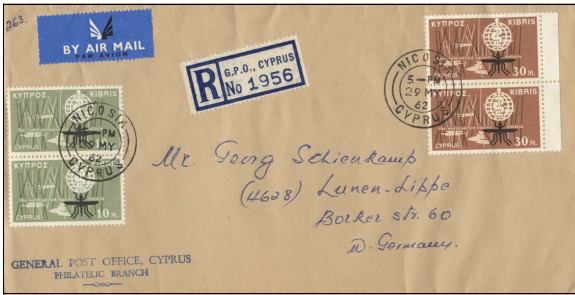 263.
BY AIR MAIL
PAR AVION
R
G.P.O., CYPRUS
No 1956
ΚΥΠΡΟΣ KIBRIS
CYPRUS 30 M.
ΚΥΠΡΟΣ KIBRIS
CYPRUS 30 M.
NICOSIA
5 - PM
29 MY
62
CYPRUS
ΚΥΠΡΟΣ KIBRIS
CYPRUS
10 M.
NICOSIA
PM
29 MY
62
CYPRUS
Mr. Georg Schienkamp
(4628) Lünen-Lippe
Borker Str. 60
W. Germany.
GENERAL POST OFFICE, CYPRUS
PHILATELIC BRANCH